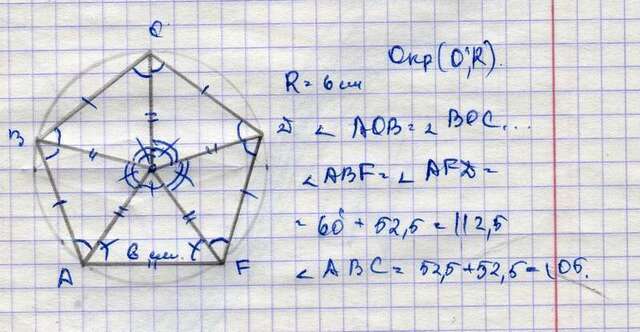 C
B
D
A
F
6 см.
Окр(O;R).
R = 6 см
∠ AOB = ∠ BOC...
∠ ABF = ∠ AFD =
= 60° + 52,5 = 112,5
∠ ABC = 52,5 + 52,5 = 105.